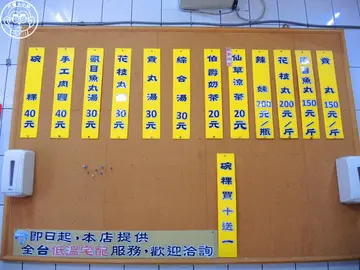 碗粿 40元
手工肉圓 40元
虱目魚丸湯 30元
花枝丸 30元
貢丸湯 30元
綜合湯 30元
伯爵奶茶 20元
仙草涼茶 20元
辣妹 200元/瓶
花枝丸 200元/斤
虱目魚丸 150元/斤
貢丸 150元/斤
碗粿買十送一
即日起,本店提供
全台低溫宅配服務,歡迎洽詢